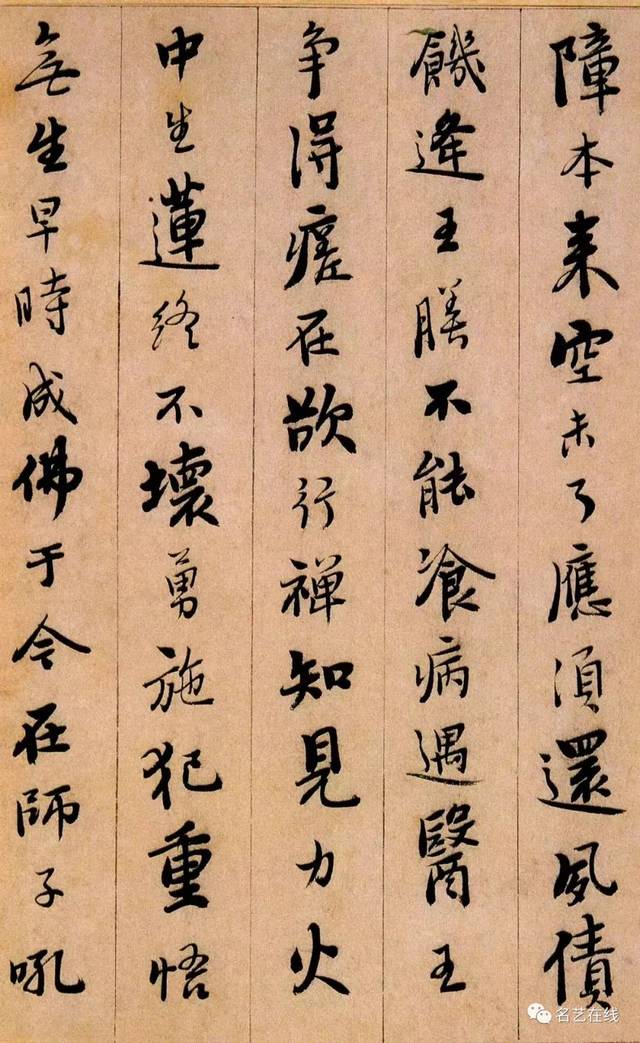 障本来空未了應須還夙債
饑逢王膳不能飡病遇醫王
争得瘥在欲行禪知見力火
中生蓮終不壞勇施犯重悟
無生早時成佛于今在師子吼
名艺在线